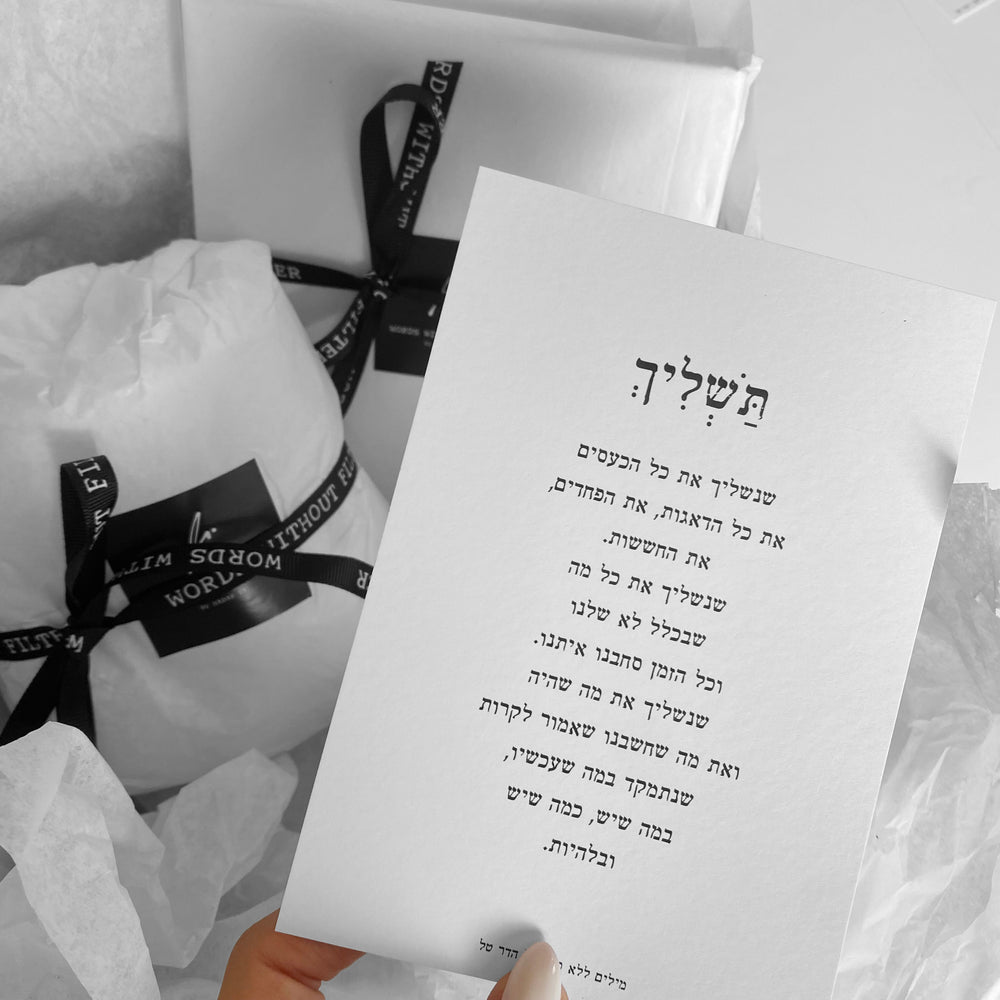 תַּשְׁלִיךְ
שנשליך את כל הכעסים
את כל הדאגות, את הפחדים,
את החששות.
שנשליך את כל מה
שבכלל לא שלנו
וכל הזמן סחבנו איתנו.
שנשליך את מה שהיה
ואת מה שחשבנו שאמור לקרות
שנתמקד במה שעכשיו,
במה שיש, כמה שיש
ובלהיות.
מילים ללא הדר טל
WITHOUT
ER
FILTER
WITHOUT FIL
WORDS WITH
WORD
FILTER W
T FI